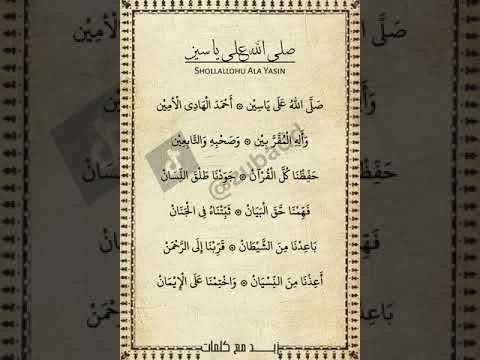 صلى الله على ياسين
SHOLLALLOHU ALA YASIN
صَلَّى اللهُ عَلَى يَاسِيْن ۞ أَحْمَدَ الْهَادِى الْأَمِيْن
وَأَلِهِ الْمُقَرَّبِيْن ۞ وَصَحْبِهِ وَالتَّابِعِيْن
حَفِّظْنَا كُلَّ الْقُرْأٰنْ ۞ جَوِّدْنَا طَلْقَ اللِّسَانْ
فَهِّمْنَا حَقَّ الْبَيَانْ ۞ ثَبِّتْنَاهُ فِى الْجَنَانْ
بَاعِدْنَا مِنَ الشَّيْطَانْ ۞ قَرِّبْنَا إِلَى الرَّحْمٰنْ
أَعِذْنَا مِنَ النِّسْيَانْ ۞ وَاخْتِمْنَا عَلَى الْإِيْمَانْ
زيد مع كلمات